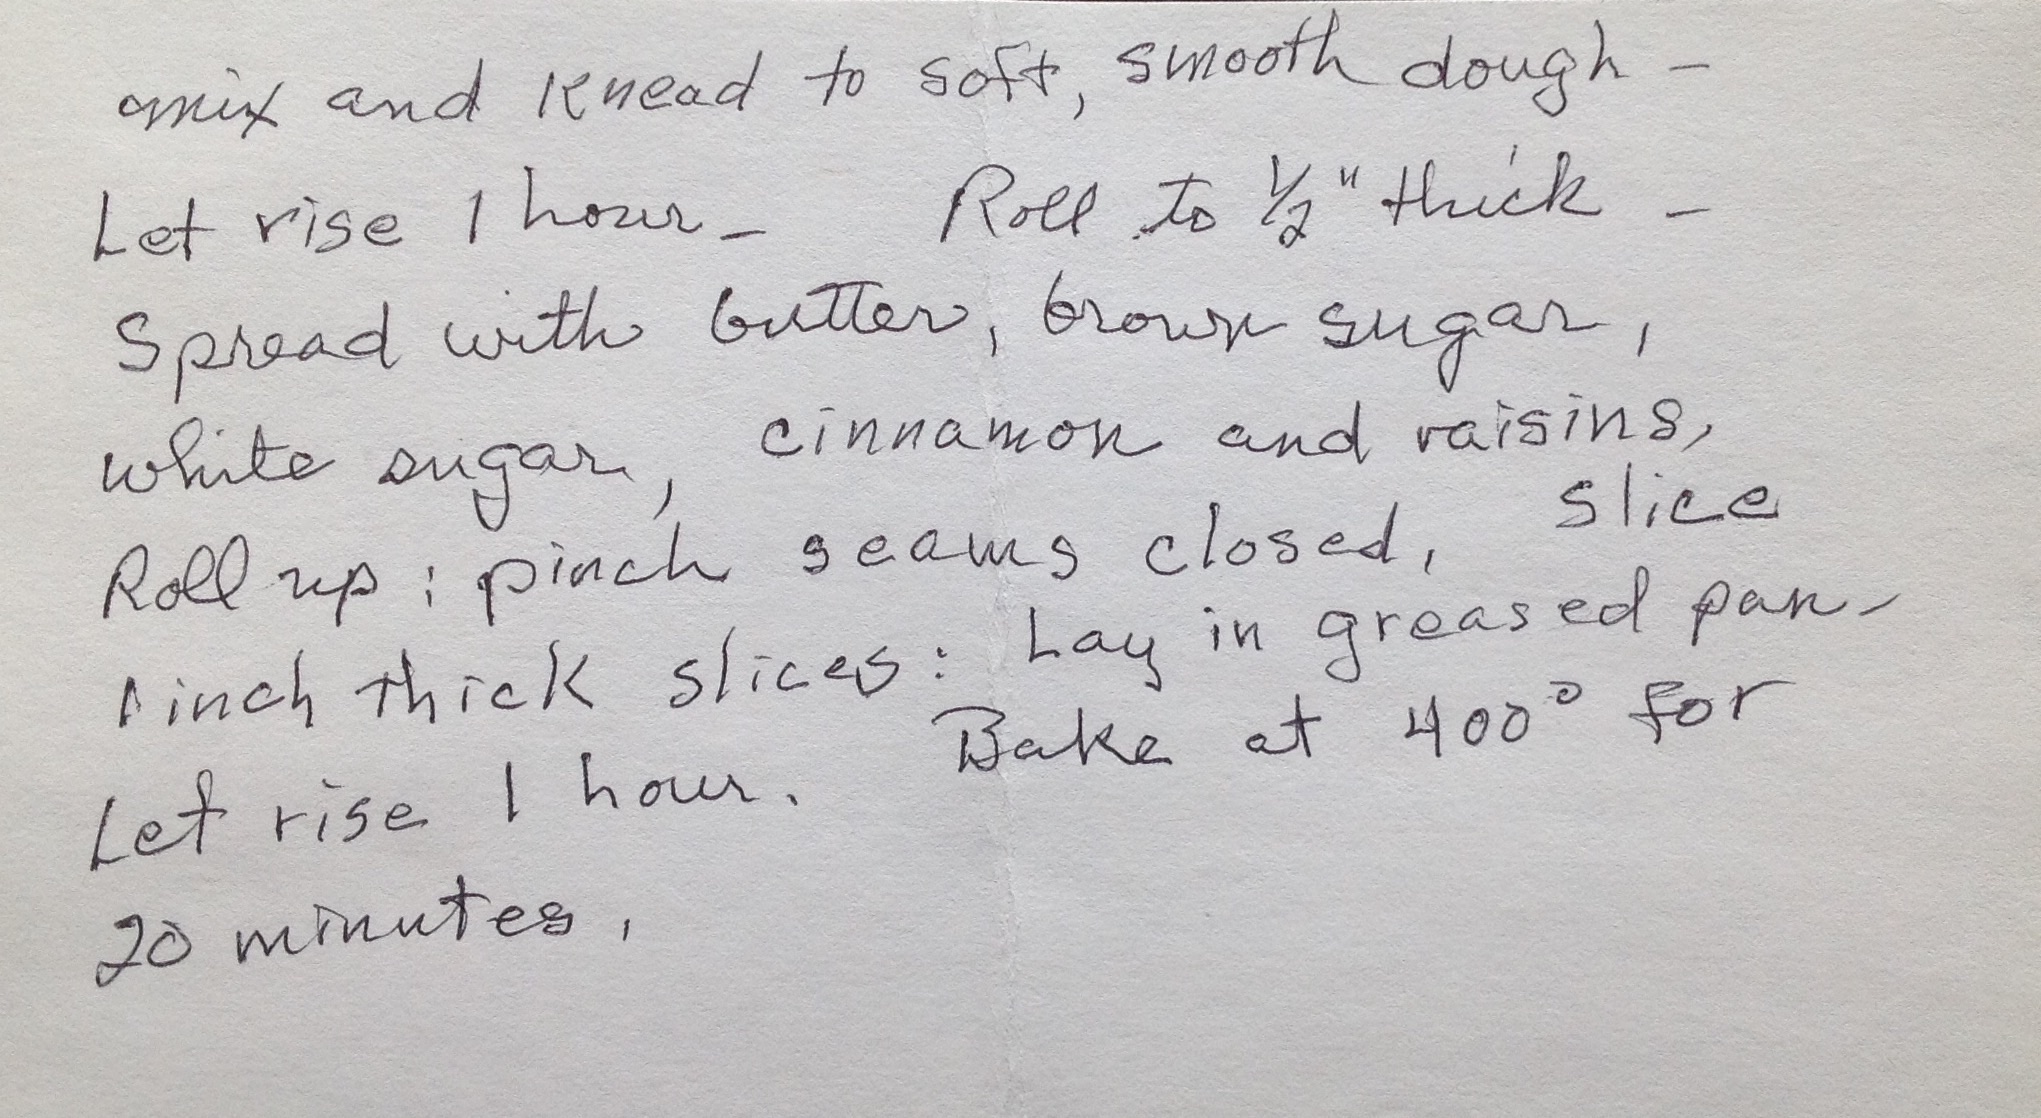 mix and knead to soft, smooth dough -
Let rise 1 hour - Roll to 1/2" thick -
Spread with butter, brown sugar,
white sugar, cinnamon and raisins,
Roll up; pinch seams closed, slice
1 inch thick slices: Lay in greased pan -
Let rise 1 hour. Bake at 400° for
20 minutes.